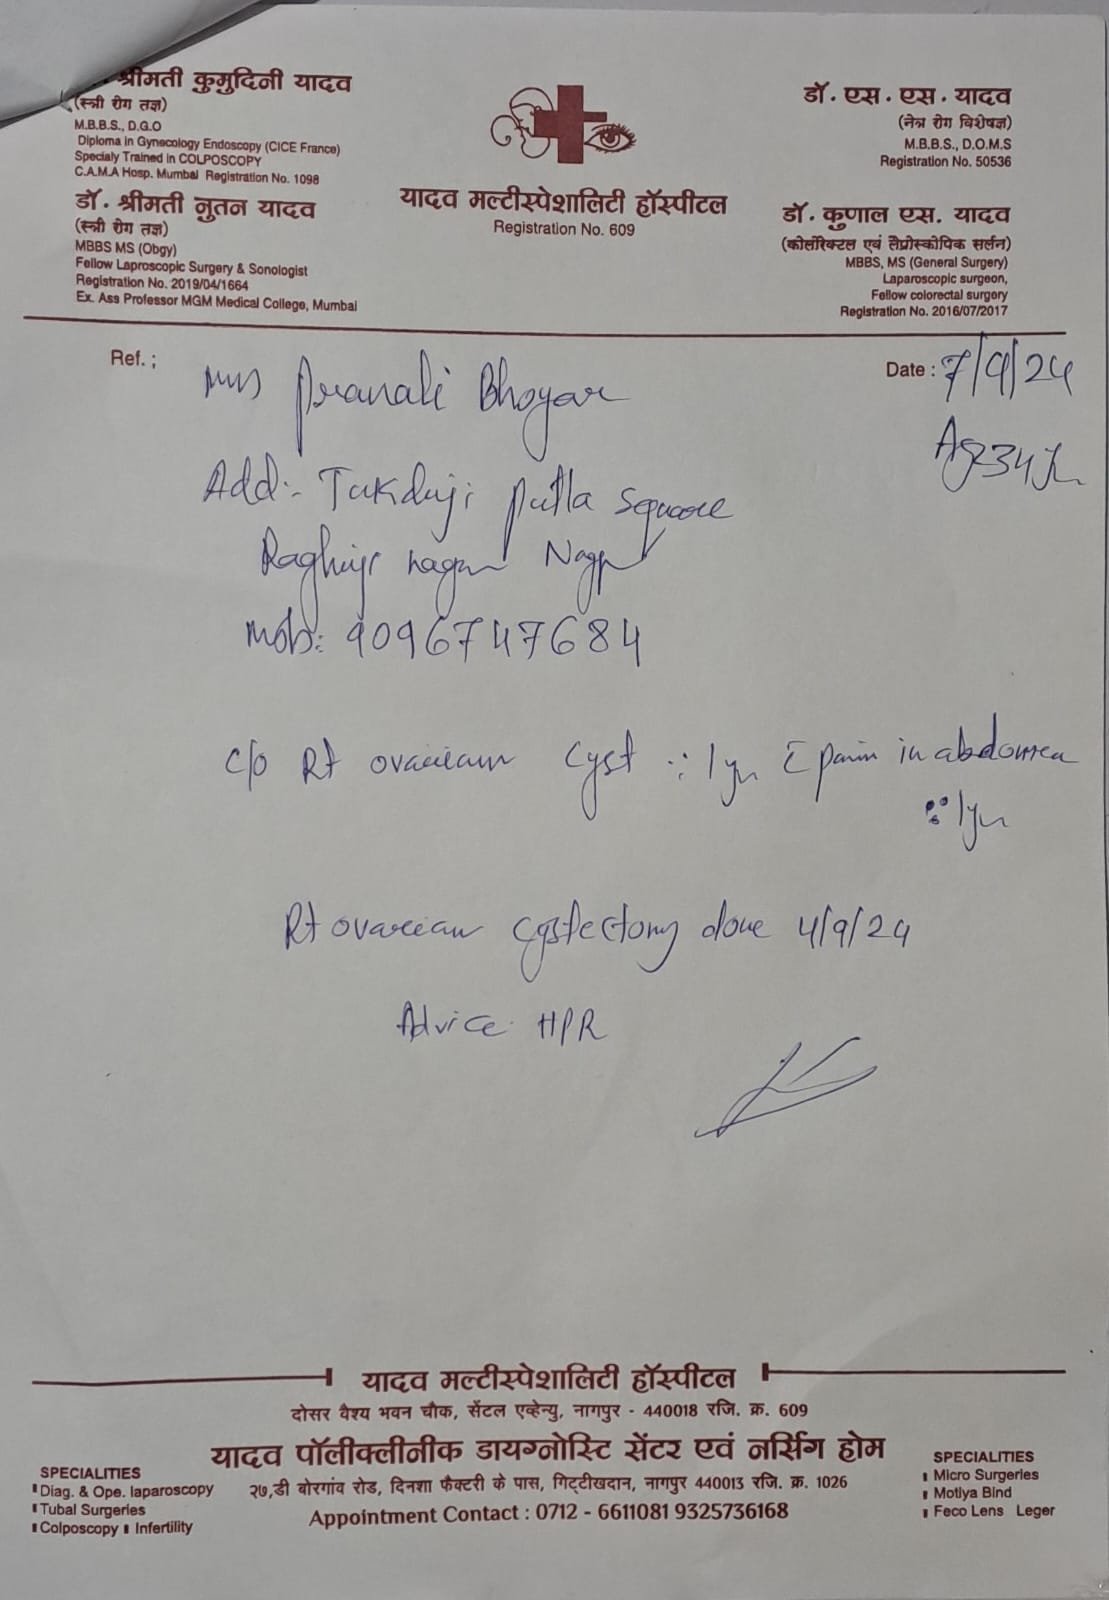 श्रीमती कुमुदिनी यादव
(स्त्री रोग तज्ञ)
M.B.B.S., D.G.O
Diploma in Gynecology Endoscopy (CICE France)
Specialy Trained in COLPOSCOPY
C.A.M.A Hosp. Mumbai Registration No. 1098
डॉ. श्रीमती नुतन यादव
(स्त्री रोग तज्ञ)
MBBS MS (Obgy)
Fellow Laproscopic Surgery & Sonologist
Registration No. 2019/04/1664
Ex. Ass Professor MGM Medical College, Mumbai
यादव मल्टीस्पेशालिटी हॉस्पीटल
Registration No. 609
डॉ. एस. एस. यादव
(नेत्र रोग विशेषज्ञ)
M.B.B.S., D.O.M.S
Registration No. 50536
डॉ. कुणाल एस. यादव
(कोलोरेक्टल एवं लैप्रोस्कोपिक सर्जन)
MBBS, MS (General Surgery)
Laparoscopic surgeon,
Fellow colorectal surgery
Registration No. 2016/07/2017
Ref. ;
Date : 7/9/24
Mrs Pranali Bhoyar
Age 34 yr
Add :- Tukduji putla square
Raghuji nagar Nagpur
Mob: 9096747684
C/o Rt ovarian cyst ∴ 1yr c̄ pain in abdomen
∷ 1yr
Rt ovarian cystectomy done 4/9/24
Advice HPR
यादव मल्टीस्पेशालिटी हॉस्पीटल
दोसर वैश्य भवन चौक, सेंटल एव्हेन्यु, नागपुर - 440018 रजि. क्र. 609
यादव पॉलीक्लीनीक डायग्नोस्टि सेंटर एवं नर्सिग होम
२७,डी बोरगांव रोड, दिनशा फैक्टरी के पास, गिट्टीखदान, नागपुर 440013 रजि. क्र. 1026
Appointment Contact : 0712 - 6611081 9325736168
SPECIALITIES
Diag. & Ope. laparoscopy
Tubal Surgeries
Colposcopy Infertility
SPECIALITIES
Micro Surgeries
Motiya Bind
Feco Lens Leger